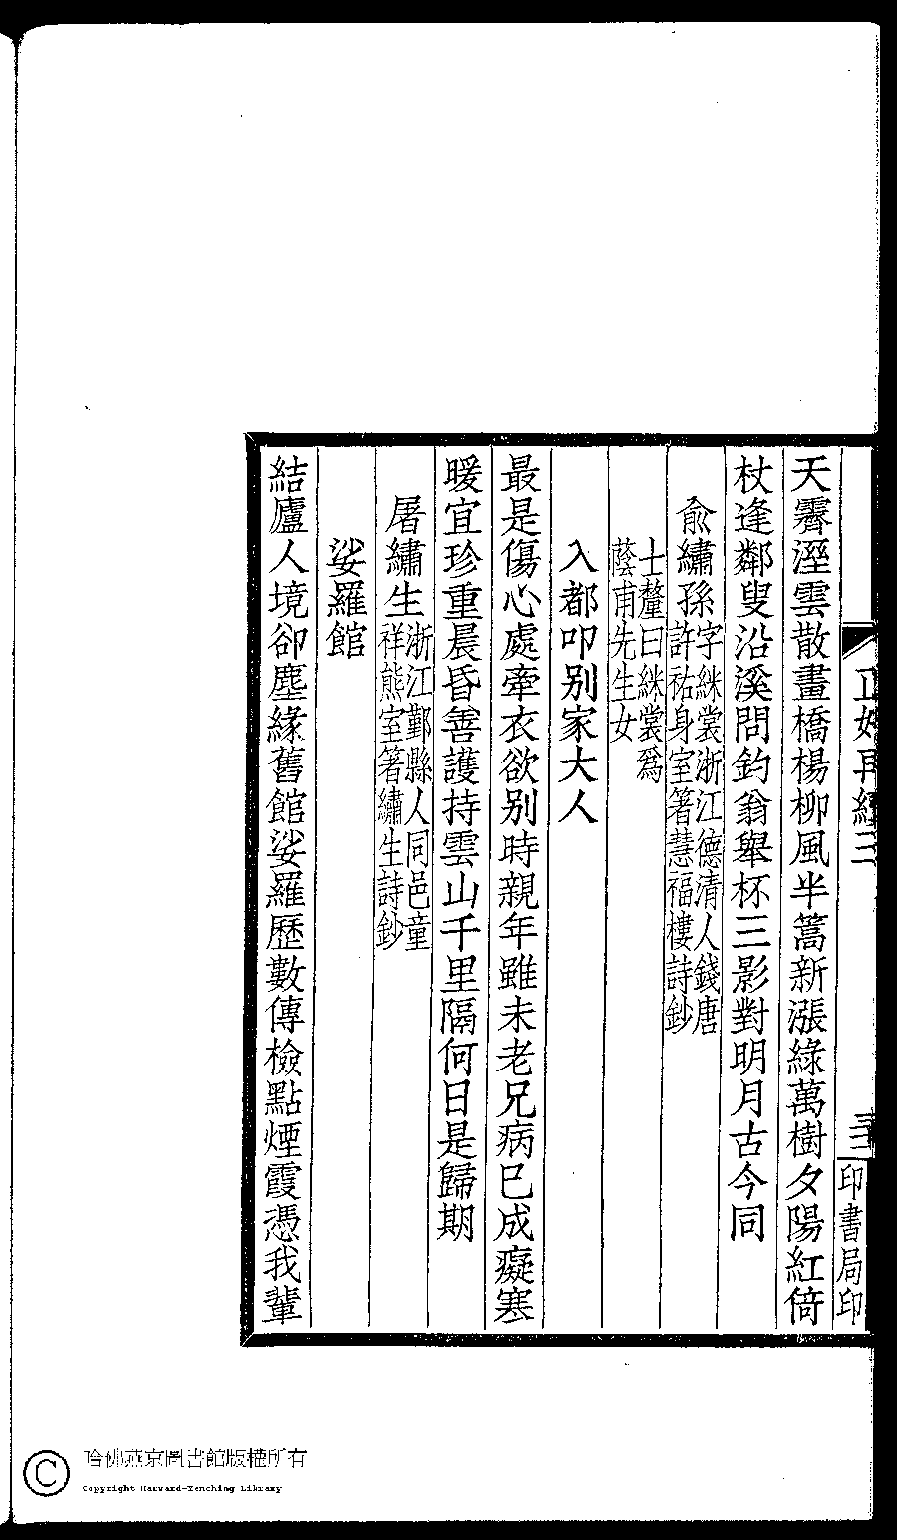 天霽溼雲散畫橋楊柳風半篙新漲綠萬樹夕陽紅倚
杖逢鄰叟沿溪問釣翁舉杯三影對明月古今同
俞繡孫字綵裳浙江德清人錢唐
許祐身室箸慧福樓詩鈔
士釐曰綵裳爲
蔭甫先生女
入都叩别家大人
最是傷心處牽衣欲别時親年雖未老兄病已成癡寒
暖宜珍重晨昏善護持雲山千里隔何日是歸期
屠繡生浙江鄞縣人同邑童
祥熊室箸繡生詩鈔
娑羅館
結廬人境卻塵緣舊館娑羅歷數傳檢點煙霞憑我輩
三
印書局印
哈佛燕京圖書館版權所有
Copyright Harvard-Yenching Library